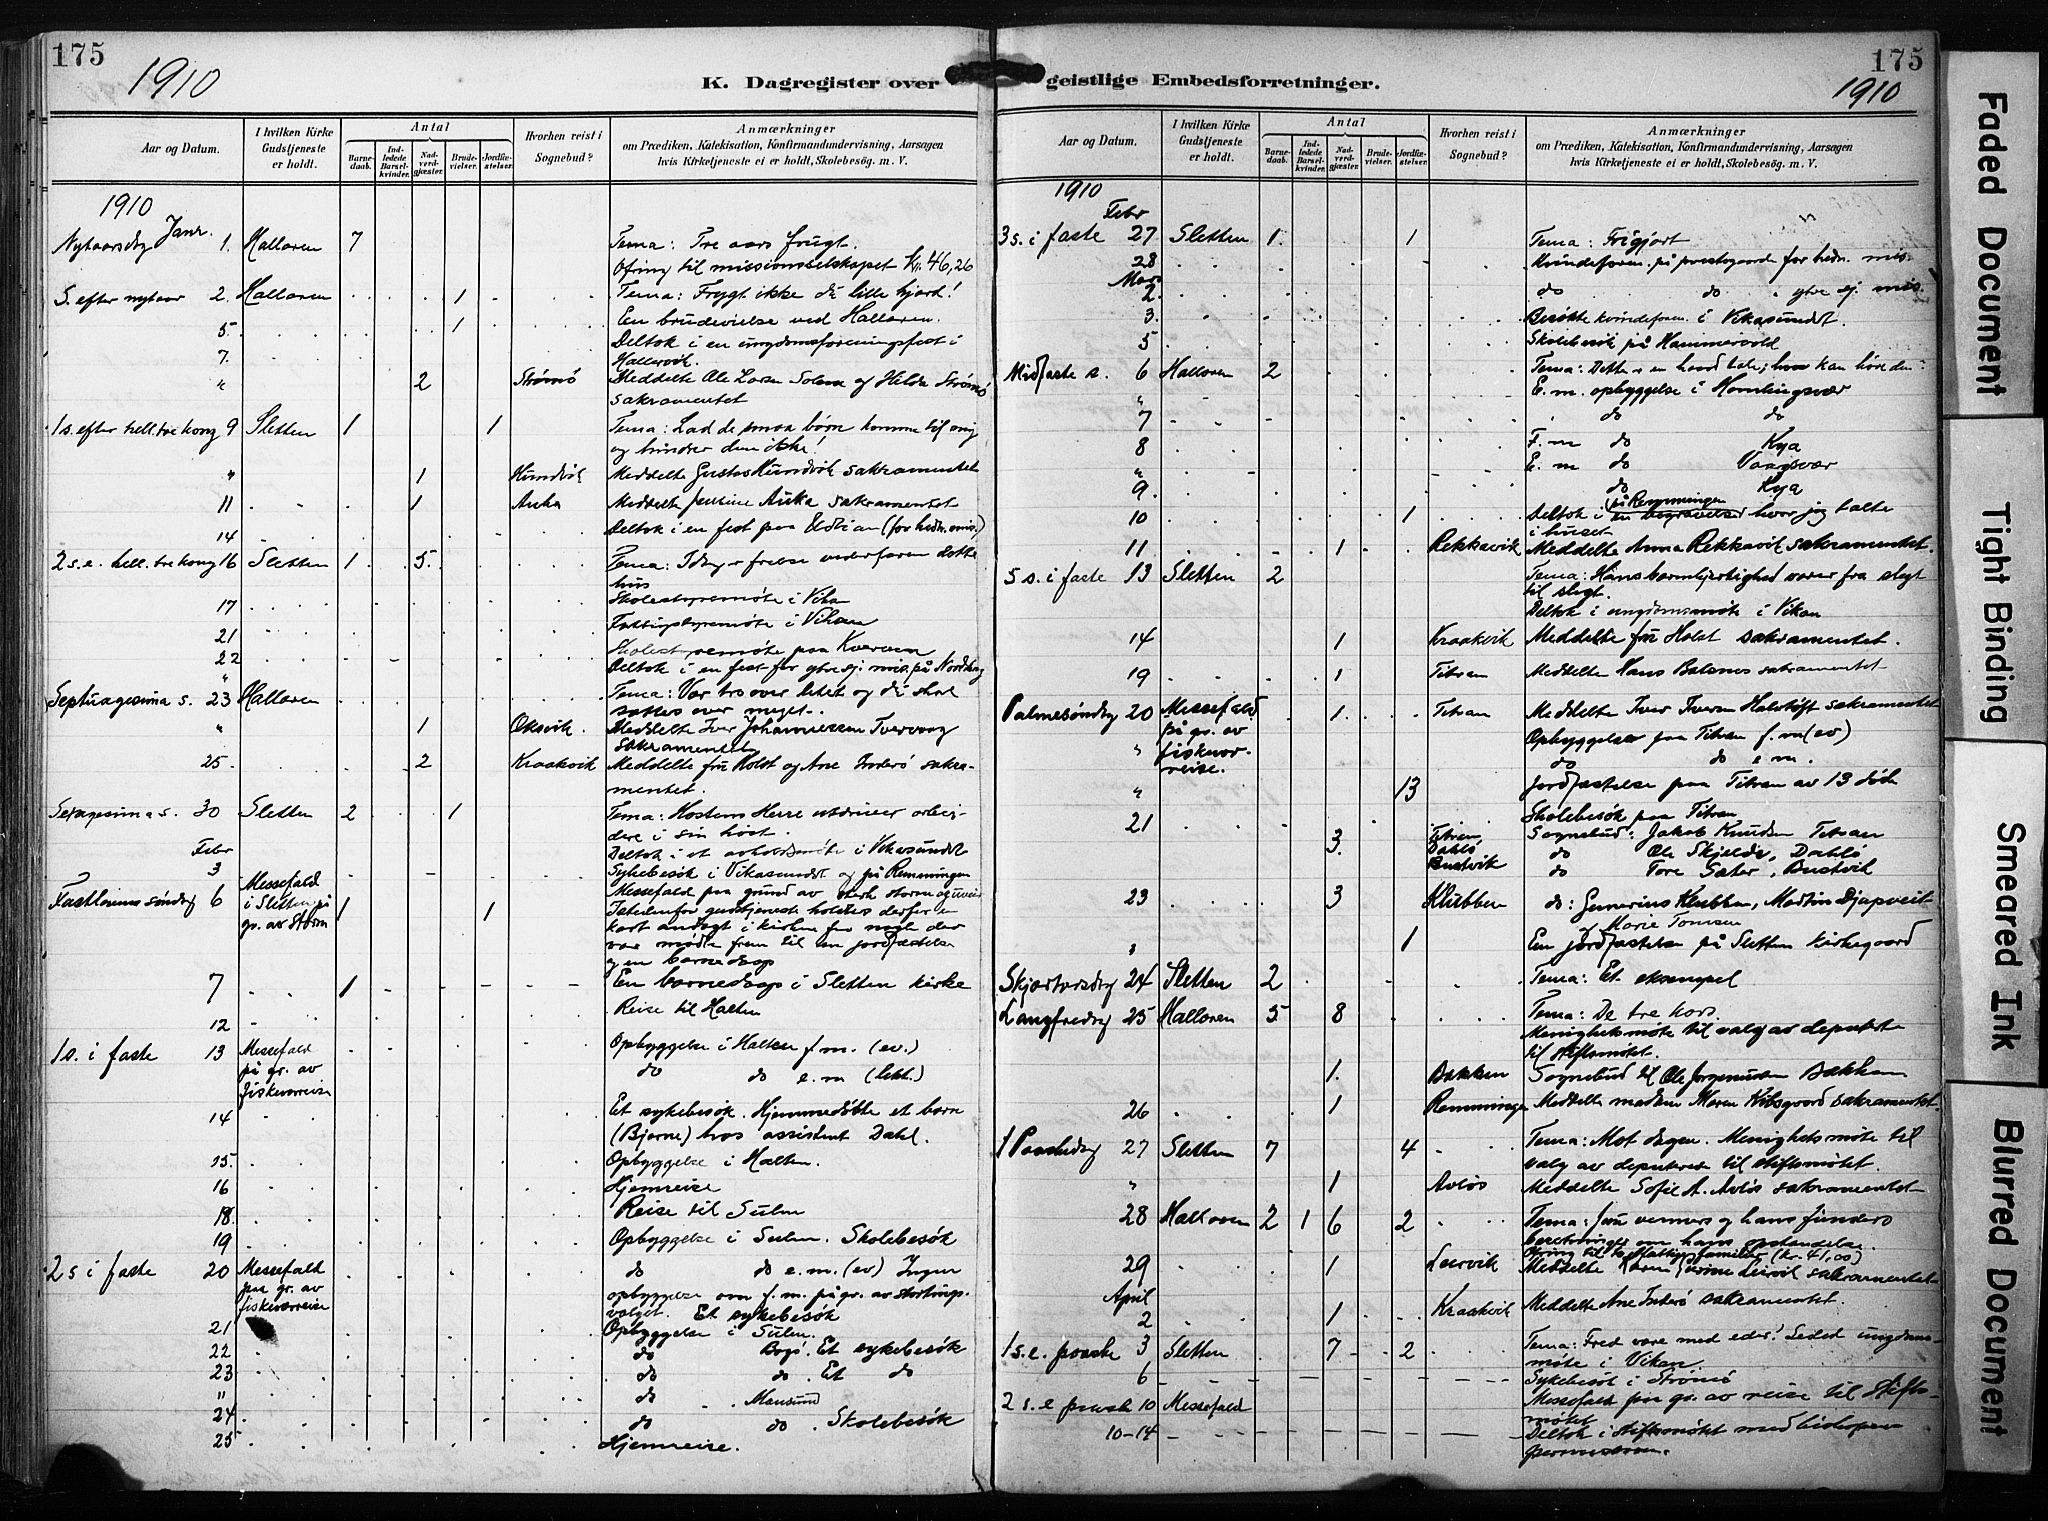 175
1910
K. Dagregister over
Aar og Datum.
I hvilken Kirke Gudstjeneste er holdt.
Antal
Barnedaab.
Indledede Barselkvinder.
Nadverdgjæster.
Brudevielser.
Jordfæstelser.
Hvorhen reist i Sognebud?
Anmærkninger
om Prædiken, Katekisation, Konfirmandundervisning, Aarsagen
hvis Kirketjeneste ei er holdt, Skolebesøg. m. V.
1910
Janr.
Nytaarsdag 1. Hallaren 7 Tema: Tre aars frugt.
Ofring til missionsselskapet Kr. 46,26
S. efter nytaar 2. Hallaren 1 Tema: Frygt ikke du lille hjord!
5. 1 En brudevielse ved Hallaren.
7. Deltok i en ungdomsforeningsfest i
Hallarvik.
" 2 Strømø Meddelte Ole Larsen og Hilda Strømø
sakramentet
1 s. efter hell. tre kong 9 Sletten 1 1 Tema: Lad de smaa børn komme til mig
og hindrer dem ikke!
" 1 Meddelte sakramentet
11 1 Auka Meddelte Auka sakramentet
14 Deltok i en fest paa (for hedn. mis.)
2 s. e. hell. tre kong 16 Sletten 1 5. Tema: Idag er frelse vederfaren dette
hus
17 Skolestyremøte i Vikan
21 Fattigstyremøte i Vikan
22 Skolestyremøte paa Kverven
" Deltok i en fest for ytre sj. mis. på
Septuagesima s. 23 Hallaren Tema: Vær tro over litet og du skal
sættes over meget.
" 1 Oksvik. Meddelte Iver Johannessen
sakramentet
25. 2 Kraakvik Meddelte fru Holst og Ane Inderø sakra-
mentet.
Sexagesima s. 30 Sletten 2 1 Tema: Høstens Herre utdriver arbei-
dere i sin høst.
Febr
3 Deltok i et avholdsmøte i Vikasundet
Sykebesøk i Vikasundet og på Remmingen
Fastlavns søndag 6 Messefald
i Sletten på
gr. av storm 1 1 Messefald paa grund av sterk storm og uveir
Istedenfor gudstjeneste holdtes derfor en
kort andagt i kirken for nogle der
var mødte frem til en jordfæstelse
og en barnedaap
7 1 En barnedaap i Sletten kirke
12 Reise til Halten
1 s. i faste 13 Messefald
på gr. av
fiskeværreise Opbyggelse i Halten f.m. (ev.)
do do e.m. (lekt.)
14 Et sykebesøk. Hjemmedøbte et barn
(Bjarne) hos assistent Dahl.
15. Opbyggelse i Halten.
16 Hjemreise
18. Reise til Sulen
19 Opbyggelse i Sulen. Skolebesøk
2 s i faste 20 Messefald
paa gr. av
fiskeværreise do do e.m. (ev) Ingen
opbyggelse om f.m. på gr. av stortings-
valget. Et sykebesøk
21 Opbyggelse i Sulen.
22 do Bogø. Et sykebesøk
23 do do. Et do
" do Mausund
24 do do. Skolebesøk
25 Hjemreise.
175
1910
geistlige Embedsforretninger.
Aar og Datum.
I hvilken Kirke Gudstjeneste er holdt.
Antal
Barnedaab.
Indledede Barselkvinder.
Nadverdgjæster.
Brudevielser.
Jordfæstelser.
Hvorhen reist i Sognebud?
Anmærkninger
om Prædiken, Katekisation, Konfirmandundervisning, Aarsagen
hvis Kirketjeneste ei er holdt, Skolebesøg. m. V.
1910
Febr
3 s. i faste 27 Sletten 1. 1 Tema: Frigjort
28 Kvindeforen. på prestegaarden for hedn. mis.
Mars
2 do do ytre sj. mis.
3. Besøkte kvindeforen. i Vikasundet.
5 Skolebesøk på Hammervold
Midfaste s. 6 Hallaren 2 Tema: Dette er en haard tale; hvo kan høre den
" E.m. opbyggelse i Homlingsvær
7 do do
8 F.m do Kya
" E.m do Vaagsvær
9. do Kya
10 1 Deltok i en begravelse på Remmingen hvor jeg talte
i huset
11 1 Rekkavik Meddelte Anna Rekkavik sakramentet.
5 s. i faste 13 Sletten 2 Tema: Hans barmhjertighed varer fra slegt
til slegt.
Deltok i ungdomsmøte i Vikan
14 1 Kraakvik Meddelte fru Holst sakramentet.
19 1 Titran Meddelte Hans sakramentet
Palmesøndag 20 Messefald
på gr. av
fiskevær-
reise. 1. Titran Meddelte Iver Iversen sakramentet
" Opbyggelse paa Titran f.m (ev)
do do e.m.
" 13 Jordfæstelse paa Titran av 13 døde
21 Skolebesøk paa Titran
3. Titran
Dahlø
Bustvik Sognebud: Jakob Knudsen Titran
do Ole Skjelde, Dahlø
do Tore Sæter, Bustvik
23 3 Klubben do: Klubben, Martin
og Marie Tomsen
" 1 En jordfæstelse på Sletten kirkegaard
Skjærtorsdag 24 Sletten 2 Tema: Et eksempel
Langfredag 25 Hallaren 5 8 Tema: De tre kors.
Menighetsmøte til valg av deputerte
til stiftsmøtet.
1. Bækken Sognebud til Ole Jørgensen Bækken
26 1 Remmingen Meddelte madam Maren sakramentet.
1 Paaskedag 27 Sletten 7 4 Tema: Mot dagen. Menighetsmøte til
valg av deputerte til stiftsmøtet.
" 1 Avløs Meddelte Sofie A. Avløs sakramentet
28 Hallaren 2 1 6 2 Tema: Jesu venners og hans fienders
beretninger om hans opstandelse.
Ofring til to fattige familier (kr. 41,00)
29 1 Leirvik Meddelte Leirvik sakramentet
April
2 1 Kraakvik Meddelte Ane Inderø sakramentet.
1 s. e. paaske 3 Sletten 7 2 Tema: Fred være med eder! Leded ungdoms-
møte i Vikan.
6 Sykebesøk i Strømø
2 s. e paaske 10 Messefald Messefald paa gr. av reise til stifts-
møtet
10-14 Deltok i stiftsmøtet med biskopen
Faded Document
Tight Binding
Smeared Ink
Blurred Document